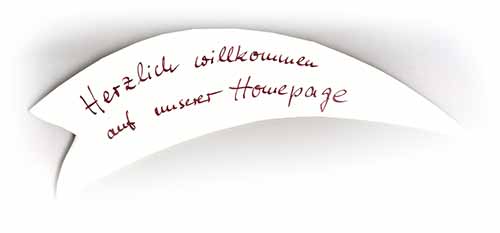 Herzlich willkommen
auf unserer Homepage